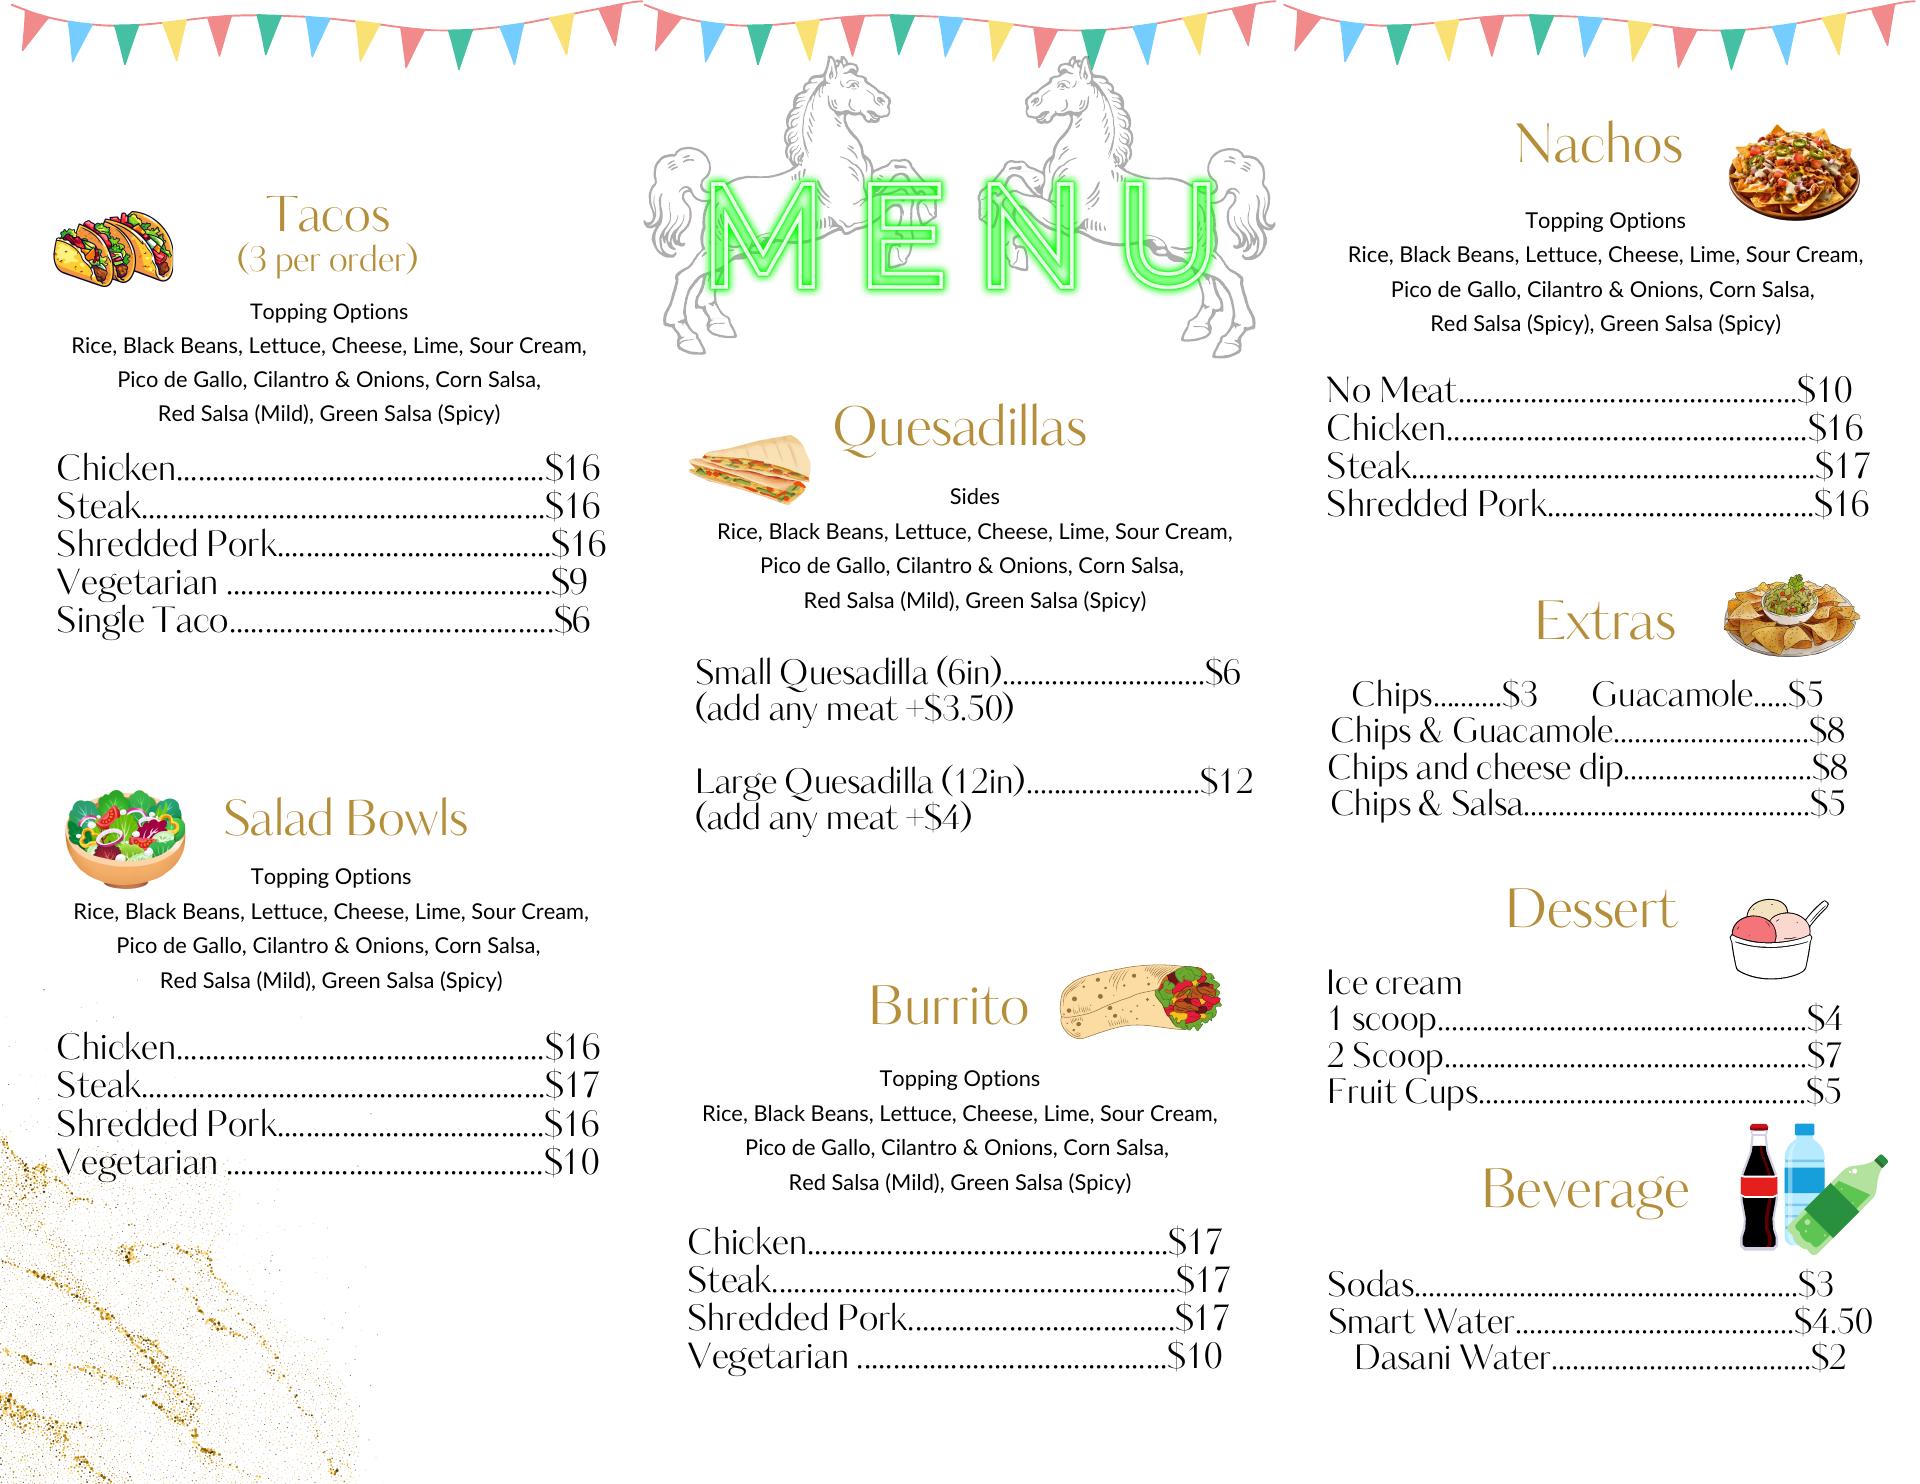 MENU
Tacos
(3 per order)
Topping Options
Rice, Black Beans, Lettuce, Cheese, Lime, Sour Cream,
Pico de Gallo, Cilantro & Onions, Corn Salsa,
Red Salsa (Mild), Green Salsa (Spicy)
Chicken..................................................$16
Steak.......................................................$16
Shredded Pork.....................................$16
Vegetarian ............................................$9
Single Taco............................................$6
Salad Bowls
Topping Options
Rice, Black Beans, Lettuce, Cheese, Lime, Sour Cream,
Pico de Gallo, Cilantro & Onions, Corn Salsa,
Red Salsa (Mild), Green Salsa (Spicy)
Chicken..................................................$16
Steak.......................................................$17
Shredded Pork....................................$16
Vegetarian ...........................................$10
Quesadillas
Sides
Rice, Black Beans, Lettuce, Cheese, Lime, Sour Cream,
Pico de Gallo, Cilantro & Onions, Corn Salsa,
Red Salsa (Mild), Green Salsa (Spicy)
Small Quesadilla (6in)............................$6
(add any meat +$3.50)
Large Quesadilla (12in)........................$12
(add any meat +$4)
Burrito
Topping Options
Rice, Black Beans, Lettuce, Cheese, Lime, Sour Cream,
Pico de Gallo, Cilantro & Onions, Corn Salsa,
Red Salsa (Mild), Green Salsa (Spicy)
Chicken.................................................$17
Steak.......................................................$17
Shredded Pork....................................$17
Vegetarian ..........................................$10
Nachos
Topping Options
Rice, Black Beans, Lettuce, Cheese, Lime, Sour Cream,
Pico de Gallo, Cilantro & Onions, Corn Salsa,
Red Salsa (Spicy), Green Salsa (Spicy)
No Meat..............................................$10
Chicken.................................................$16
Steak.......................................................$17
Shredded Pork....................................$16
Extras
Chips..........$3 Guacamole.....$5
Chips & Guacamole...........................$8
Chips and cheese dip..........................$8
Chips & Salsa.......................................$5
Dessert
Ice cream
1 scoop...................................................$4
2 Scoop..................................................$7
Fruit Cups.............................................$5
Beverage
Sodas.....................................................$3
Smart Water.......................................$4.50
Dasani Water....................................$2